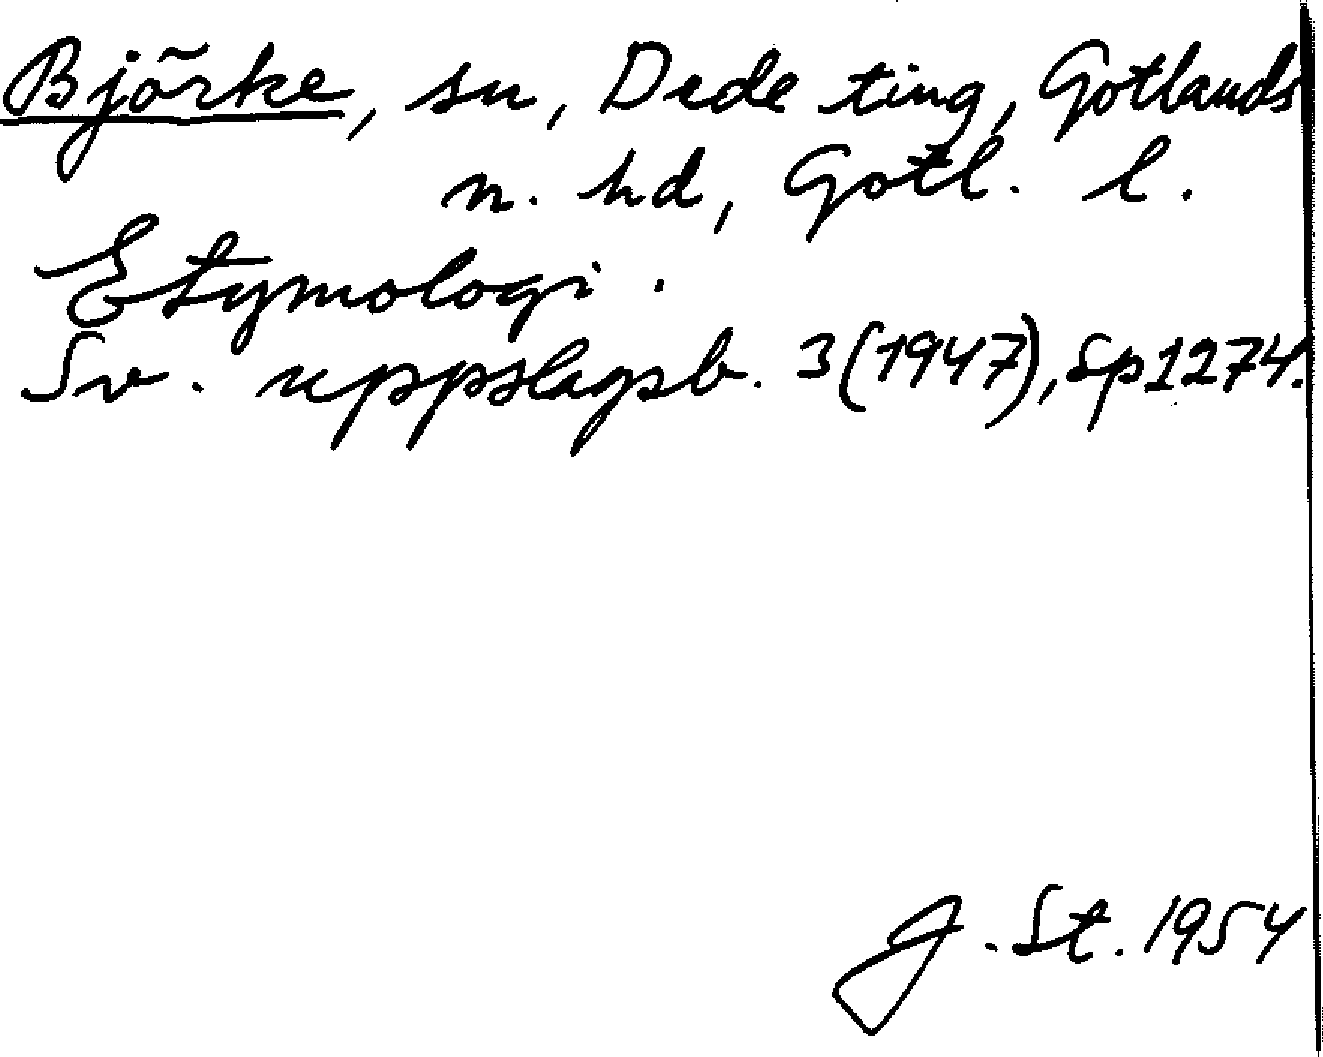 Björke, sn, Dede ting, Gotlands
n. hd, Gotl. l.
Etymologi.
Sv. uppslagsb. 3(1947), Sp1274.
J. St. 1954